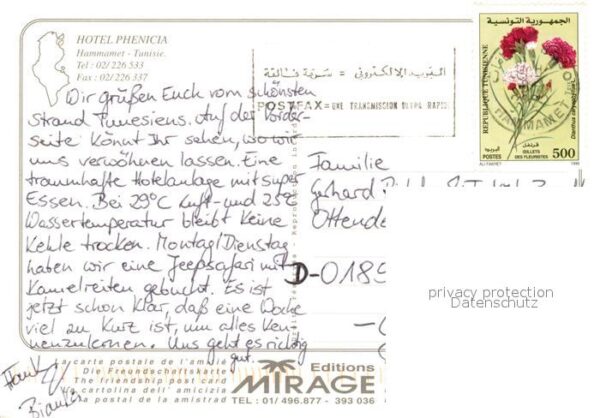 HOTEL PHENICIA
Hammamet - Tunisie.
Tel : 02/ 226 533
Fax : 02/ 226 337
Wir grüßen Euch vom schönsten
Strand Tunesiens. Auf der Vorder-
seite könnt Ihr sehen, wo wir
uns verwöhnen lassen. Eine
traumhafte Hotelanlage mit super
Essen. Bei 29°C Luft- und 25°C
Wassertemperatur bleibt keine
Kehle trocken. Montag/Dienstag
haben wir eine Jeepsafari mit
Kamelreiten gebucht. Es ist
jetzt schon klar, daß eine Woche
viel zu kurz ist, um alles ken-
nenzulernen. Uns geht es richtig
gut.
البريد الإلكتروني = سرعة فائقة
POSTFAX = UNE TRANSMISSION ULTRA RAPIDE
الجمهورية التونسية
REPUBLIQUE TUNISIENNE
HAMMAMET
قرنفل
البريد
OEILLETS
DES FLEURISTES
POSTES
500
Familie
Gerhard
Ottende
D-0185
privacy protection
Datenschutz
La carte postale de l'amitié
Die Freundschaftskarte
The friendship post card
La cartolina dell'amicizia
La postal de la amistad
Editions
MIRAGE
TEL : 01/ 496.877 - 393 036